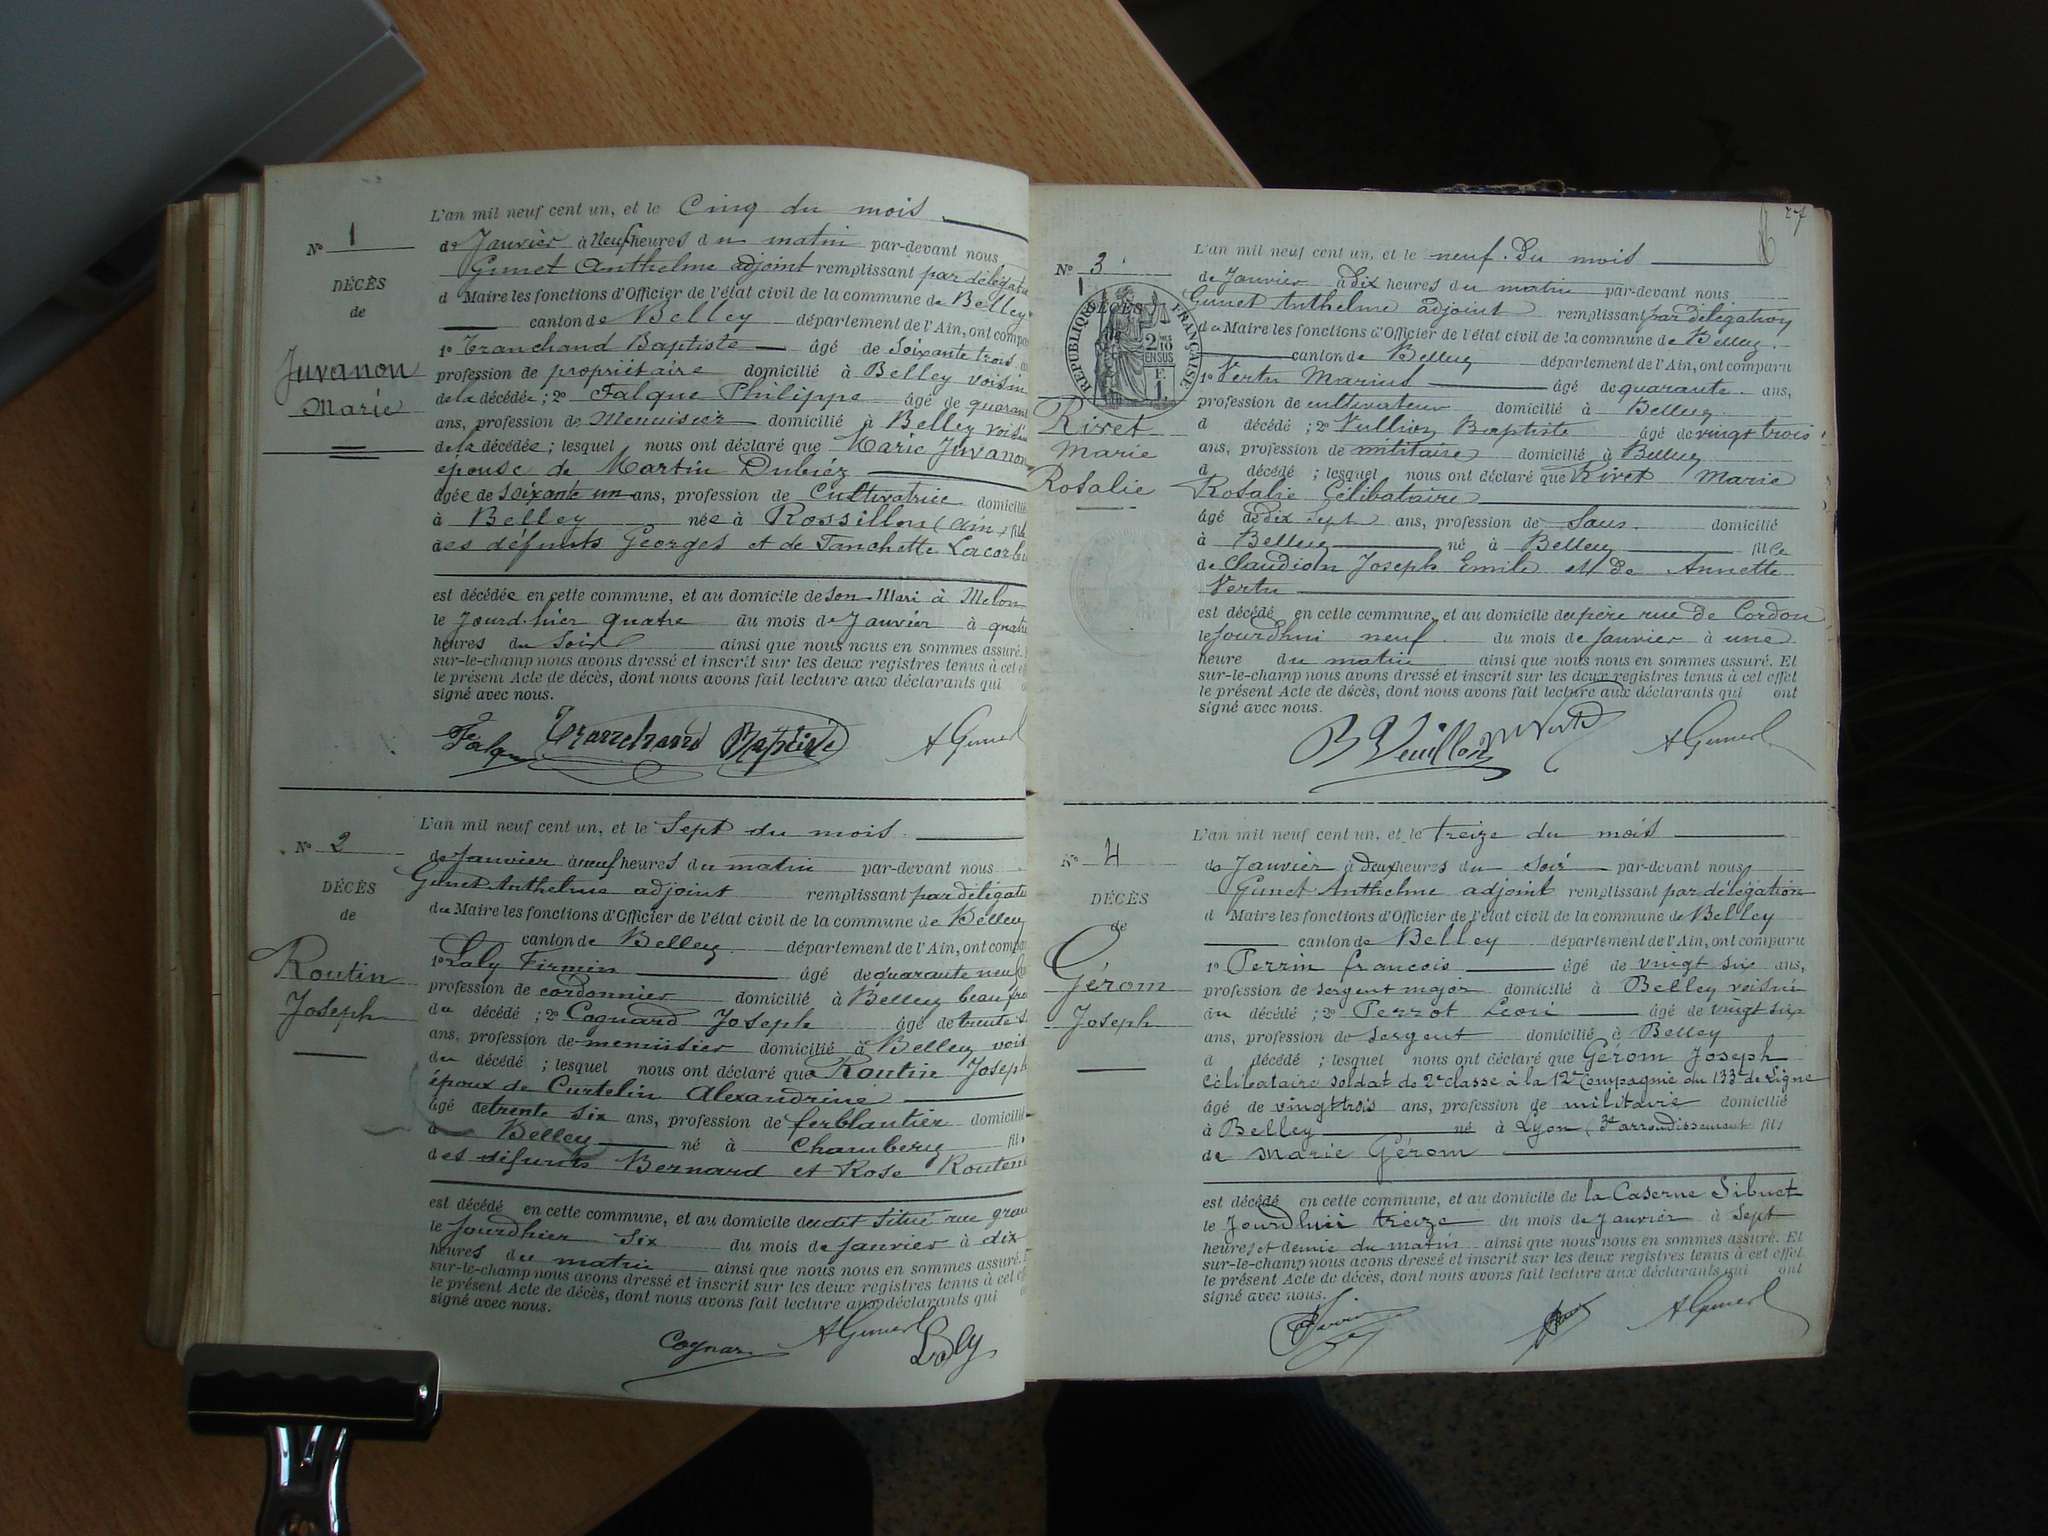 N° 1
DÉCÈS
de
Juvanon
Marie
L'an mil neuf cent un, et le Cinq du mois
de Janvier à Neuf heures du matin par-devant nous
Gunet Anthelme adjoint remplissant par délégati
d Maire les fonctions d'Officier de l'état civil de la commune de Belley
canton de Belley département de l'Ain, ont compa
1° Tranchand Baptiste âgé de Soixante trois
profession de propriétaire domicilié à Belley voisin
de la décédée ; 2° Falque Philippe âgé de quarant
ans, profession de Menuisier domicilié à Belley voisin
de la décédée ; lesquel nous ont déclaré que Marie Juvanon
épouse de Martin Dubiéz
âgée de soixante un ans, profession de Cultivatrice domicilié
à Belley née à Rossillon (Ain) fille
des défunts Georges et de Fanchette Lacorbe
est décédée en cette commune, et au domicile de son Mari à Melon
le Jourd-hier quatre du mois de Janvier à quatre
heures du soir ainsi que nous nous en sommes assuré.
sur-le-champ nous avons dressé et inscrit sur les deux registres tenus à cet ef
le présent Acte de décès, dont nous avons fait lecture aux déclarants qui
signé avec nous.
Falque Tranchand Baptiste A Gunet
N° 2
DÉCÈS
de
Routin
Joseph
L'an mil neuf cent un, et le Sept du mois
de Janvier à neuf heures du matin par-devant nous
Gunet Anthelme adjoint remplissant par délégati
du Maire les fonctions d'Officier de l'état civil de la commune de Belley
canton de Belley département de l'Ain, ont compa
1° Laly Firmin âgé de quarante neuf
profession de cordonnier domicilié à Belley beau frè
du décédé ; 2° Cognard Joseph âgé de trente s
ans, profession de menuisier domicilié à Belley vois
du décédé ; lesquel nous ont déclaré que Routin Joseph
époux de Curtelin Alexandrine
âgé de trente six ans, profession de ferblantier domicilié
à Belley né à Chambery fils
des défunts Bernard et Rose Routin
est décédé en cette commune, et au domicile dudit situé rue gran
le Jourdhier six du mois de janvier à dix
heures du matin ainsi que nous nous en sommes assuré.
sur-le-champ nous avons dressé et inscrit sur les deux registres tenus à cet ef
le présent Acte de décès, dont nous avons fait lecture aux déclarants qui
signé avec nous.
Cognar A Gunet Laly
27
N° 3
RÉPUBLIQUE FRANÇAISE
DÉCÈS
2/10
EN SUS
1 F.
Rivet
Marie
Rosalie
L'an mil neuf cent un, et le neuf du mois
de Janvier à dix heures du matin par-devant nous
Gunet Anthelme adjoint remplissant par délégation
du Maire les fonctions d'Officier de l'état civil de la commune de Belley
canton de Belley département de l'Ain, ont comparu
1° Vertu Marius âgé de quarante ans,
profession de cultivateur domicilié à Belley
d décédé ; 2° Vullion Baptiste âgé de vingt trois
ans, profession de militaire domicilié à Belley
d décédé ; lesquel nous ont déclaré que Rivet Marie
Rosalie Célibataire
âgé de dix Sept ans, profession de Sans domicilié
à Belley né à Belley fille
de Claudion Joseph Emile et de Annette
Vertu
est décédé en cette commune, et au domicile du père rue de Cordon
le jourdhui neuf du mois de janvier à une
heure du matin ainsi que nous nous en sommes assuré. Et
sur-le-champ nous avons dressé et inscrit sur les deux registres tenus à cet effet
le présent Acte de décès, dont nous avons fait lecture aux déclarants qui ont
signé avec nous.
B Veuillon M Vertu A Gunet
N° 4
DÉCÈS
de
Gérom
Joseph
L'an mil neuf cent un, et le treize du mois
de Janvier à deux heures du soir par-devant nous
Gunet Anthelme adjoint remplissant par délégation
d Maire les fonctions d'Officier de l'état civil de la commune de Belley
canton de Belley département de l'Ain, ont comparu
1° Perrin francois âgé de vingt six ans,
profession de sergent major domicilié à Belley voisin
du décédé ; 2° Perrot Léon âgé de vingt six
ans, profession de sergent domicilié à Belley
d décédé ; lesquel nous ont déclaré que Gérom Joseph
célibataire soldat de 2e classe à la 12e Compagnie du 133e de Ligne
âgé de vingt trois ans, profession de militaire domicilié
à Belley né à Lyon (3e arrondissement fils
de Marie Gérom
est décédé en cette commune, et au domicile de la Caserne Sibuet
le Jourdhui treize du mois de Janvier à Sept
heures et demie du matin ainsi que nous nous en sommes assuré. Et
sur-le-champ nous avons dressé et inscrit sur les deux registres tenus à cet effet
le présent Acte de décès, dont nous avons fait lecture aux déclarants qui ont
signé avec nous.
A Gunet